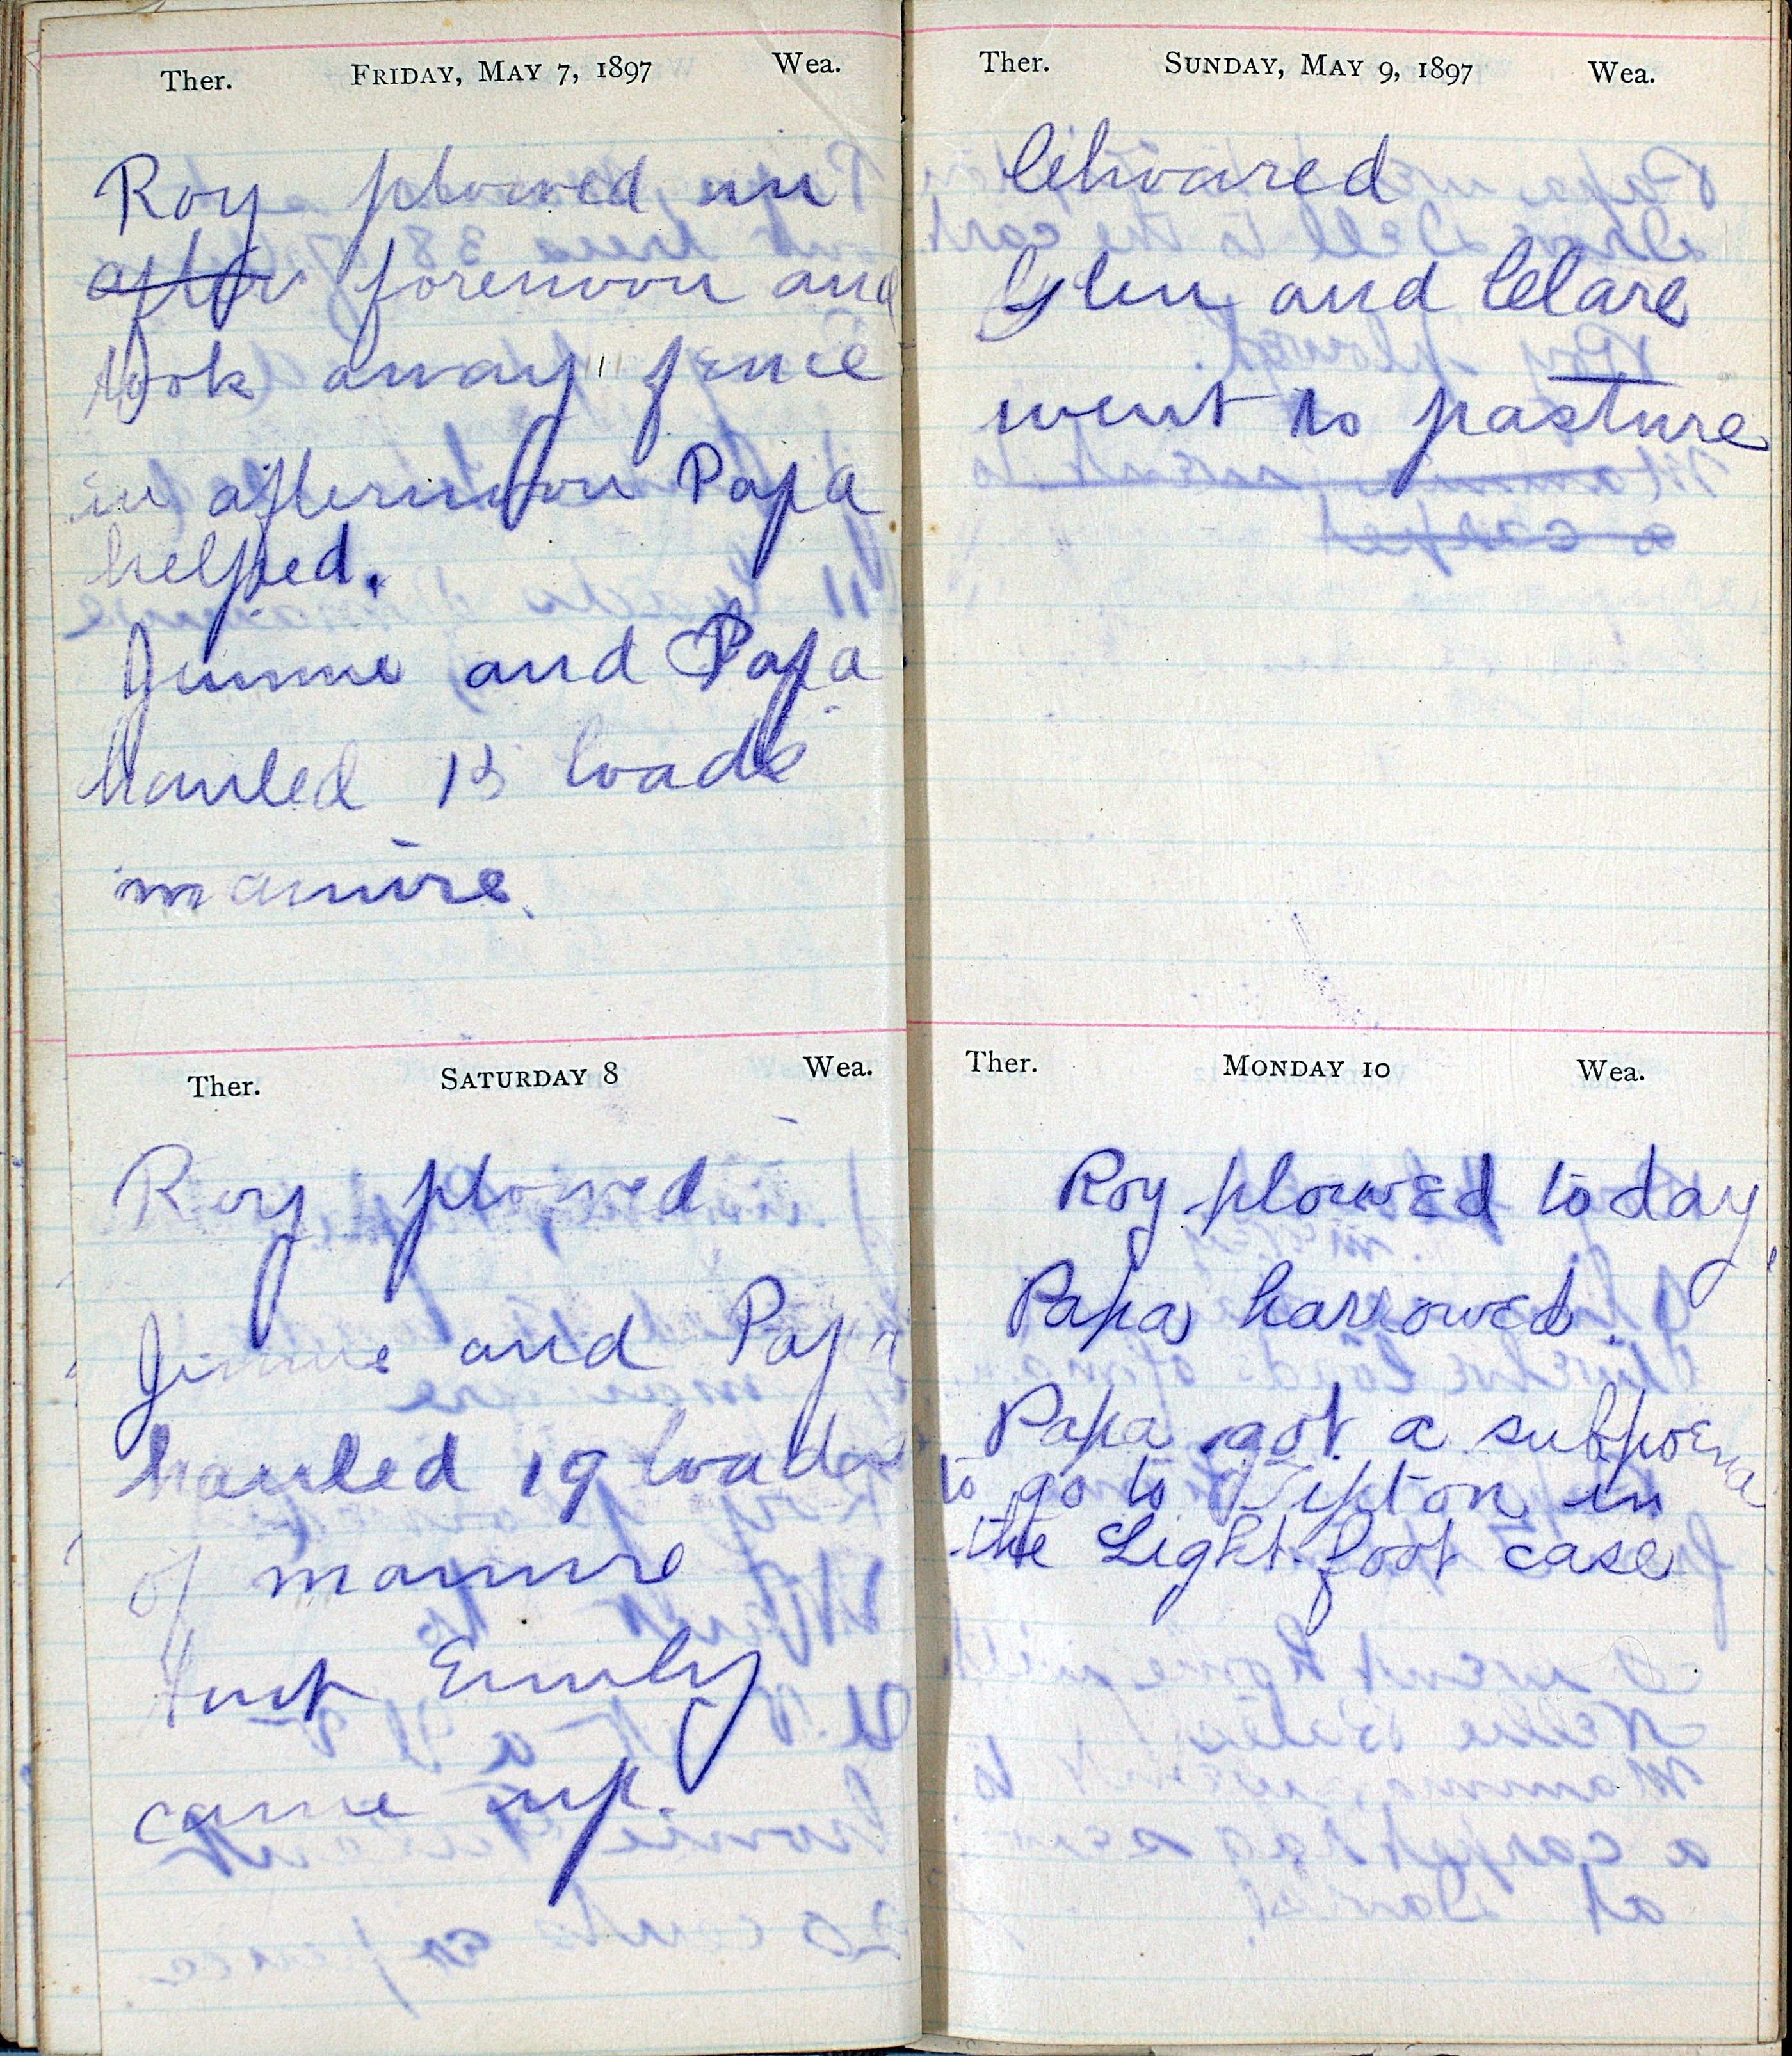 Ther. FRIDAY, MAY 7, 1897 Wea.
Roy plowed in
after forenoon and
took away fence
in afternoon Papa
helped.
Jimme and Papa
hauled 13 loads
manure.
Ther. SATURDAY 8 Wea.
Roy plowed
Jimme and Papa
hauled 19 loads
of manure
Aunt Emily
came up.
Ther. SUNDAY, MAY 9, 1897 Wea.
Glen and Clare
went to pasture
Ther. MONDAY 10 Wea.
Roy plowed today
Papa harrowed.
Papa got a subpoena
to go to Tipton in
the Lightfoot case